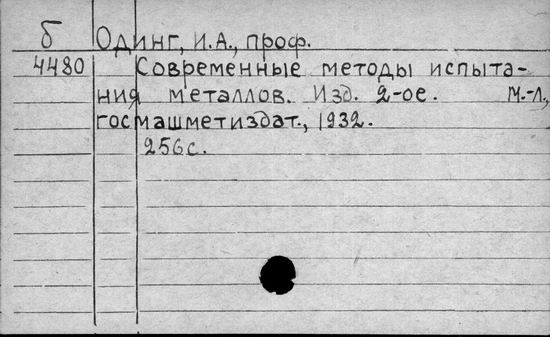 б Одинг, И.А., проф.
4480 Современные методы испыта-
ния металлов. Изд. 2-ое. М.-Л.,
госмашметиздат., 1932.
256с.